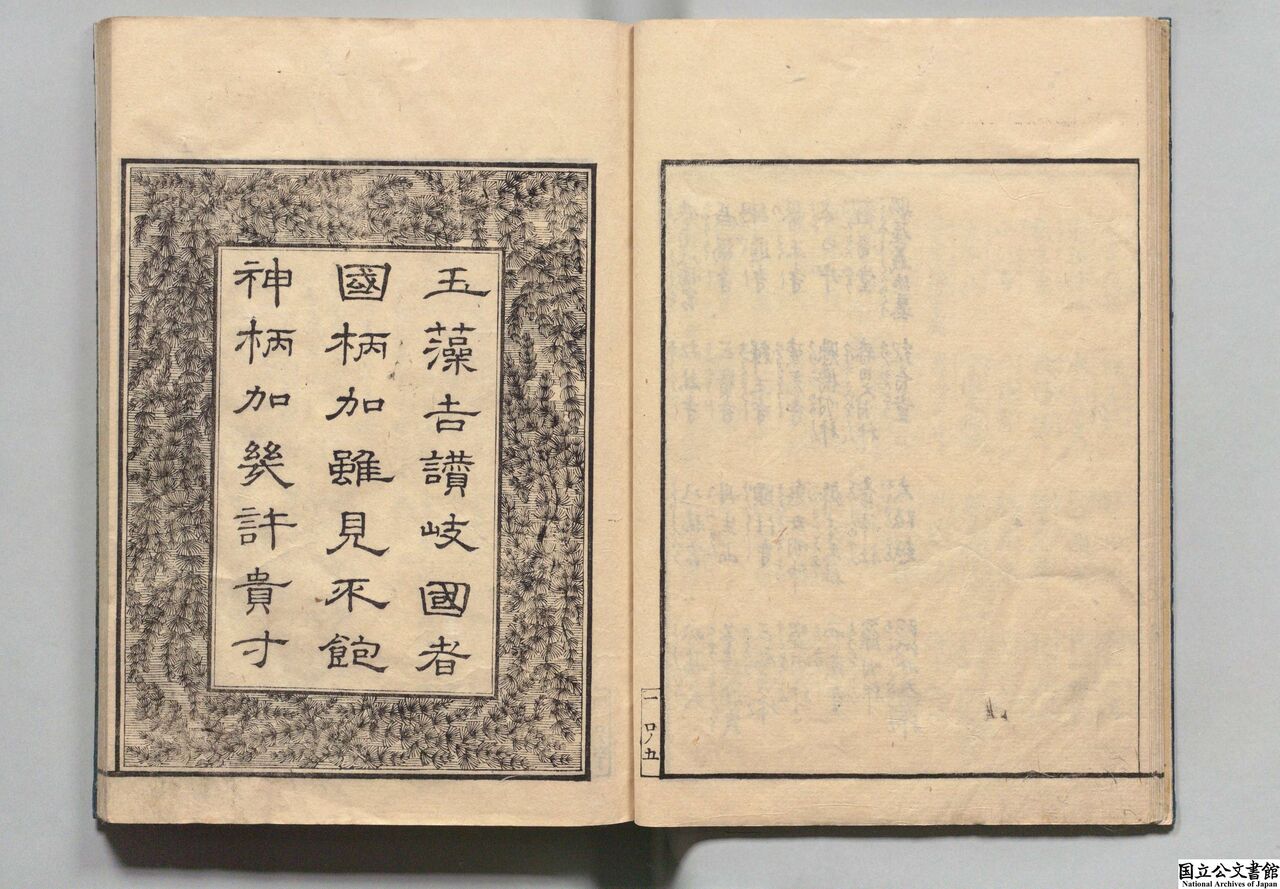 一 ロノ五
玉藻吉讃岐國者
國柄加雖見不飽
神柄加幾許貴寸
国立公文書館
National Archives of Japan